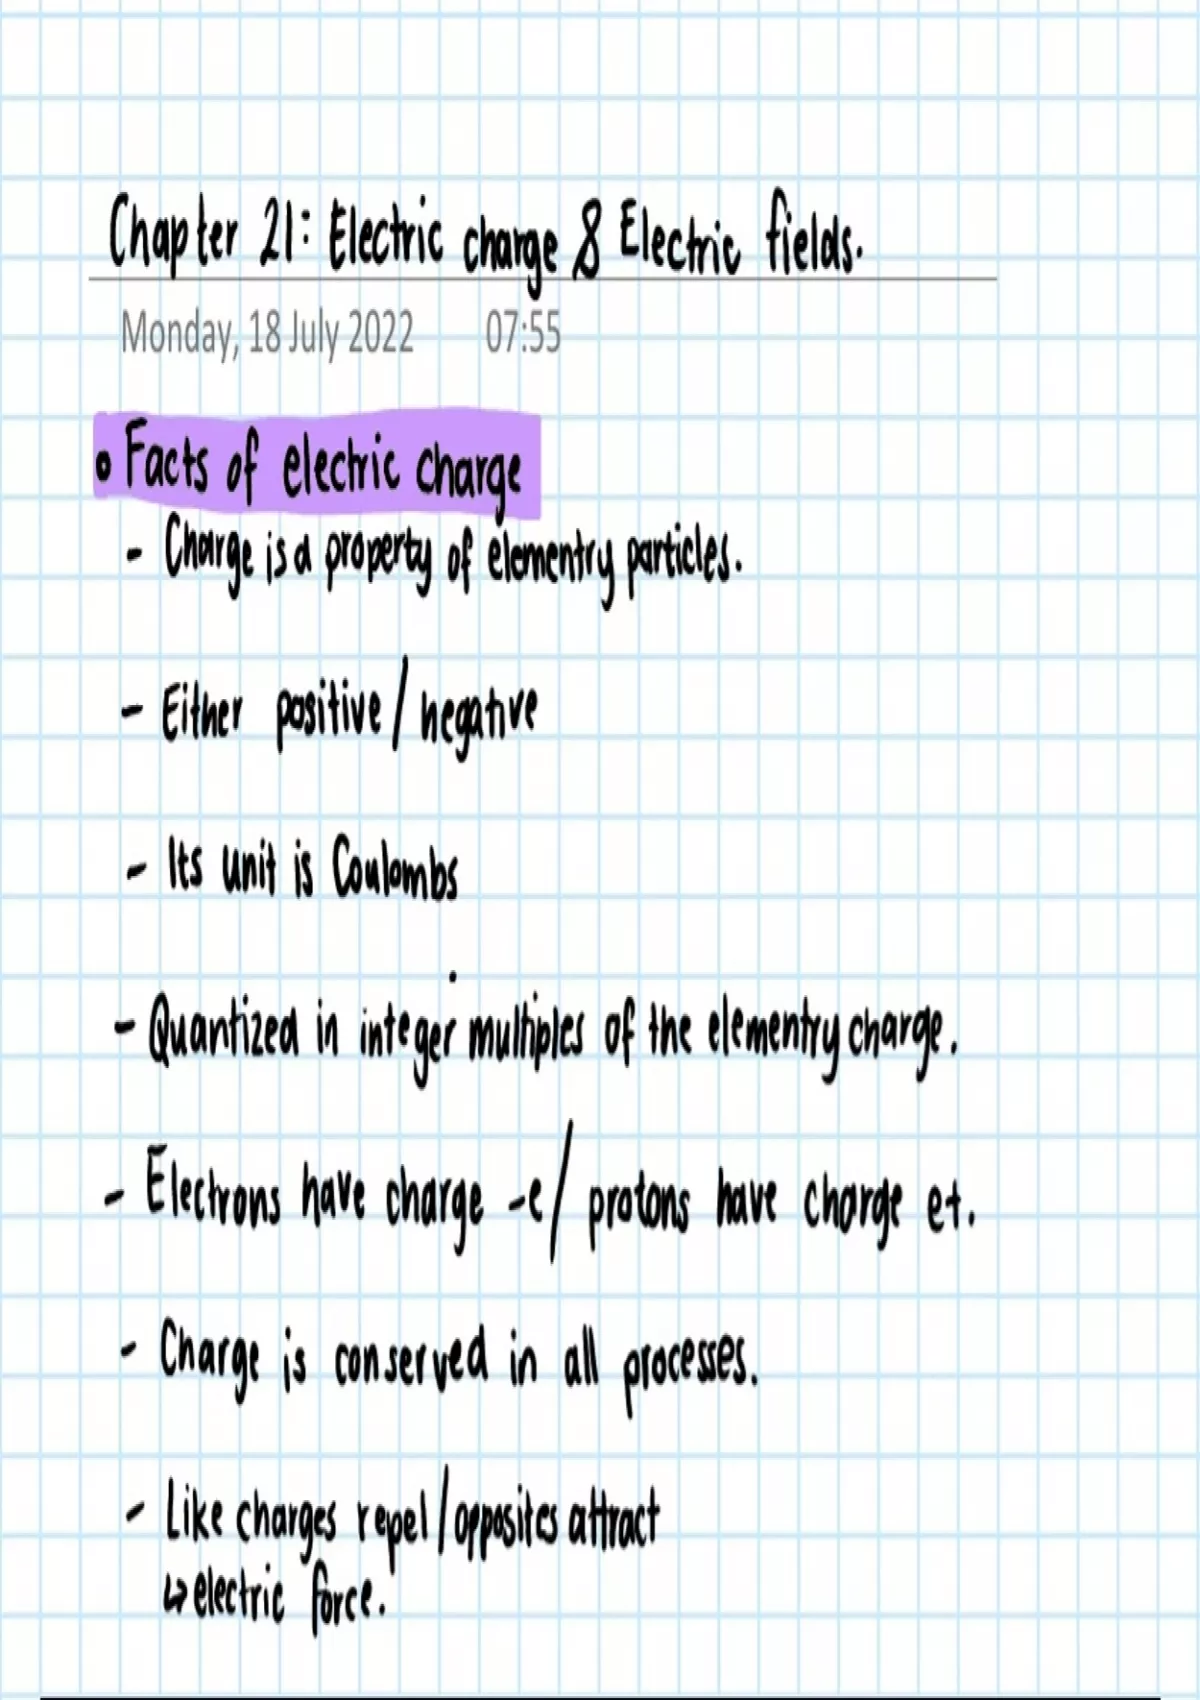 Chapter 21: Electric charge & Electric fields.
Monday, 18 July 2022 07:55
• Facts of electric charge
- Charge is a property of elementry particles.
- Either positive / negative
- Its unit is Coulombs
- Quantized in integer multiples of the elementry charge.
- Electrons have charge -e / protons have charge e+.
- Charge is conserved in all processes.
- Like charges repel / opposites attract
↳ electric force.